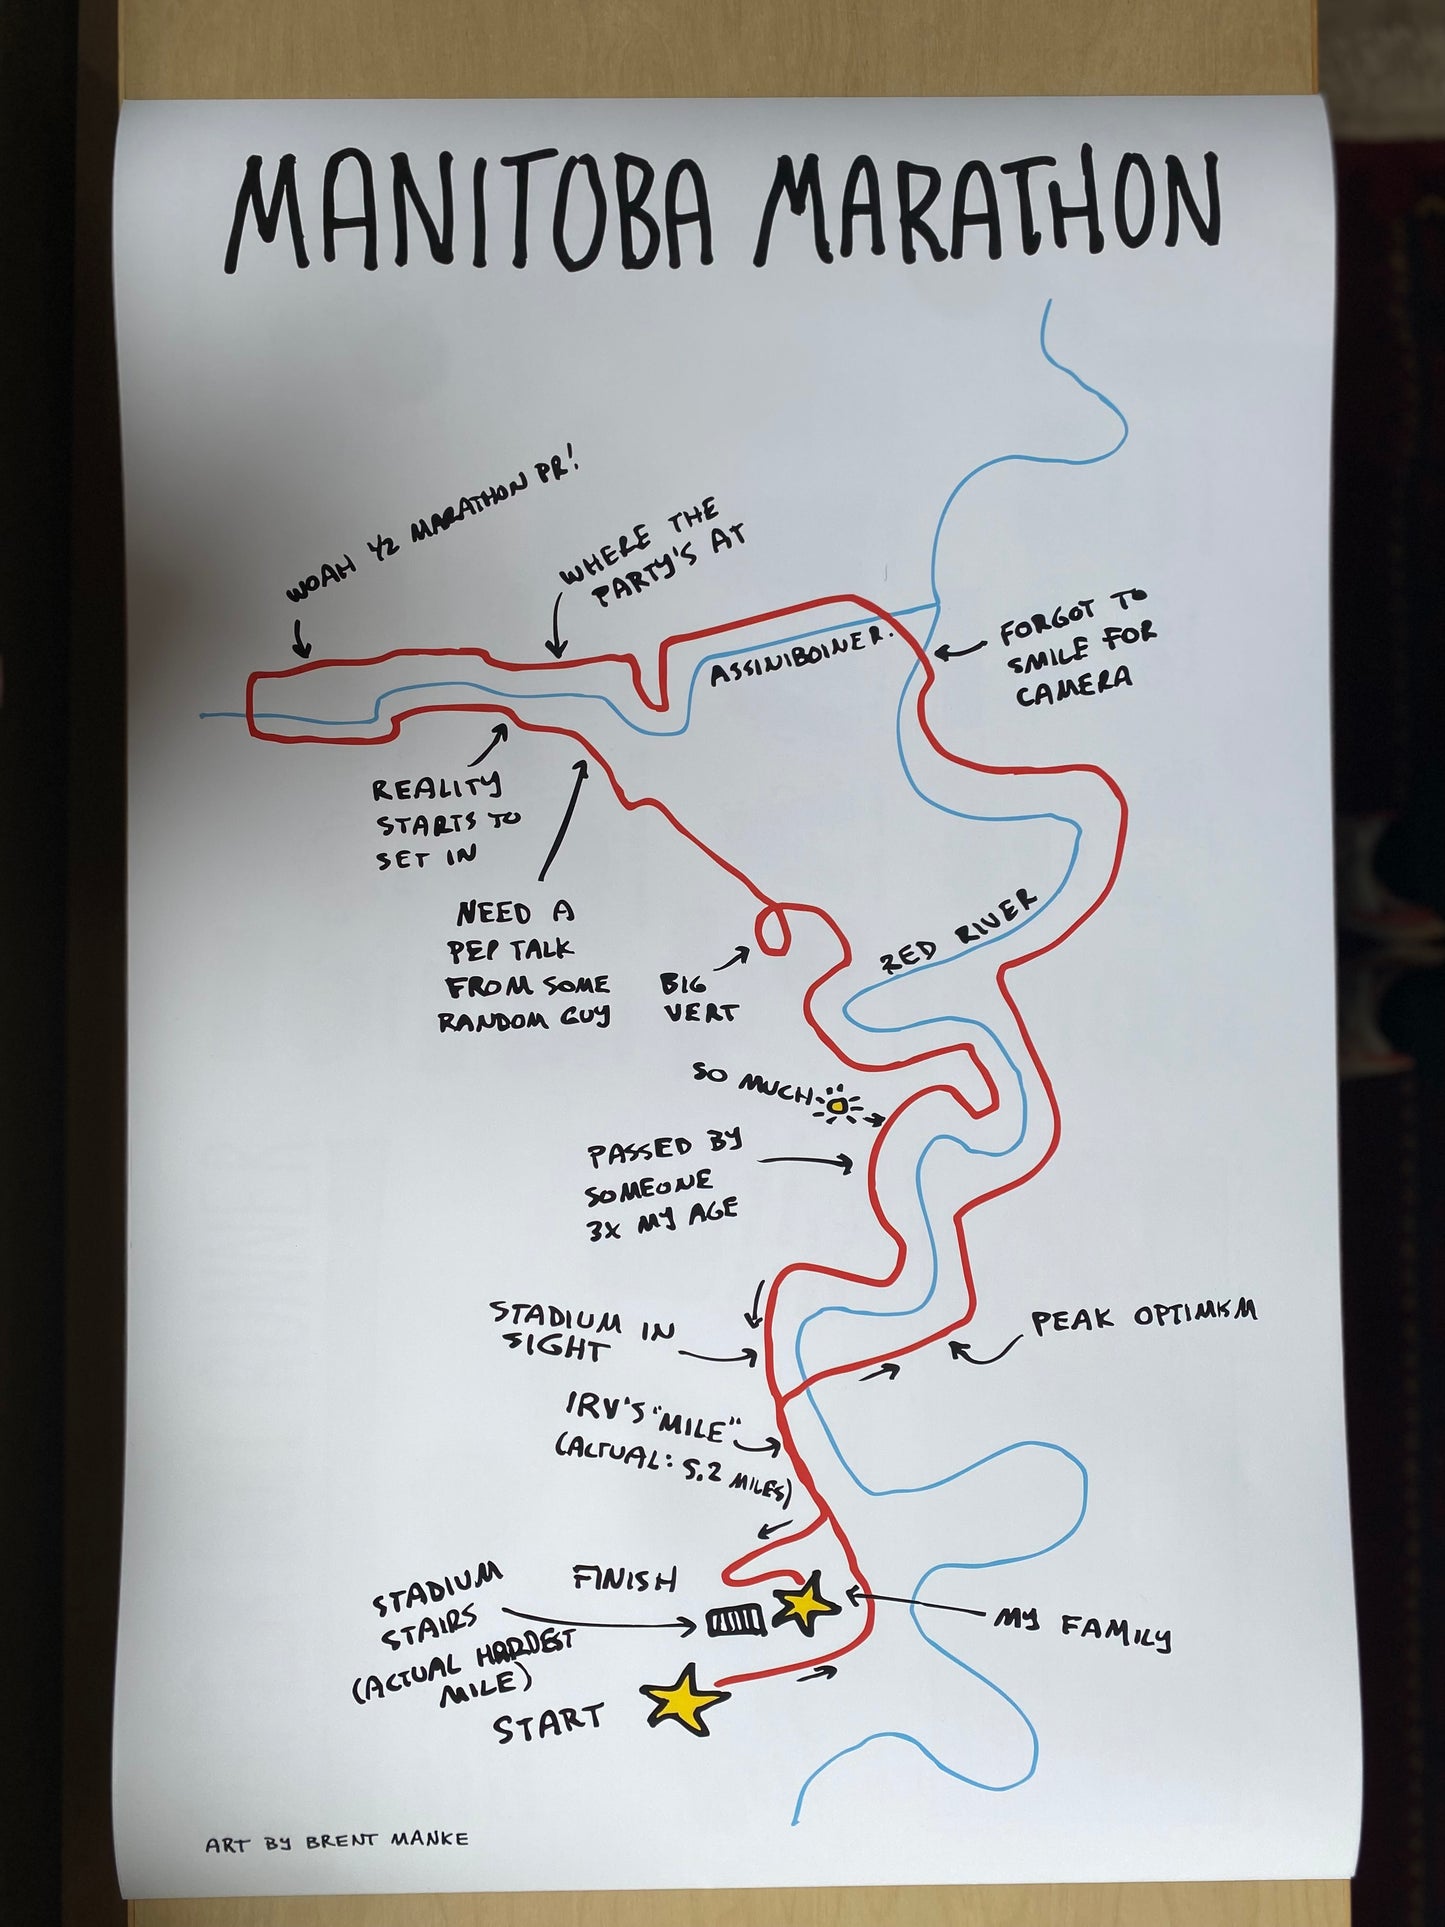 MANITOBA MARATHON
WOAH 1/2 MARATHON PR!
WHERE THE
PARTY'S AT
FORGOT TO
SMILE FOR
CAMERA
ASSINIBOINE R.
REALITY
STARTS TO
SET IN
NEED A
PEP TALK
FROM SOME
RANDOM GUY
BIG
VERT
RED RIVER
SO MUCH
PASSED BY
SOMEONE
3X MY AGE
STADIUM IN
SIGHT
PEAK OPTIMISM
IRV'S "MILE"
(ACTUAL: 5.2 MILES)
FINISH
STADIUM
STAIRS
(ACTUAL HARDEST
MILE)
MY FAMILY
START
ART BY BRENT MANKE